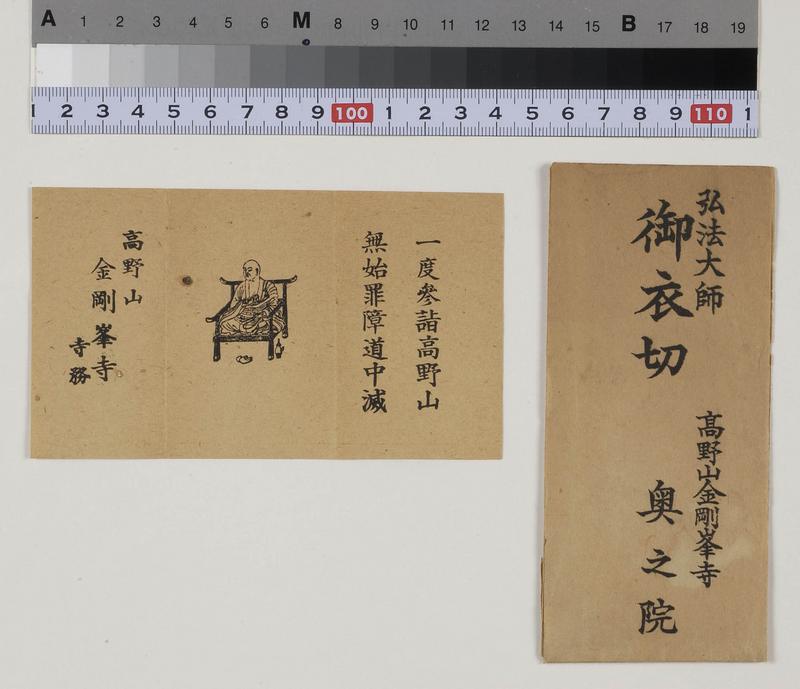 A 1 2 3 4 5 6 M 8 9 10 11 12 13 14 15 B 17 18 19
1 2 3 4 5 6 7 8 9 100 1 2 3 4 5 6 7 8 9 110 1
一度參詣高野山
無始罪障道中滅
高野山
金剛峯寺
寺務
弘法大師
御衣切
高野山金剛峯寺
奥之院